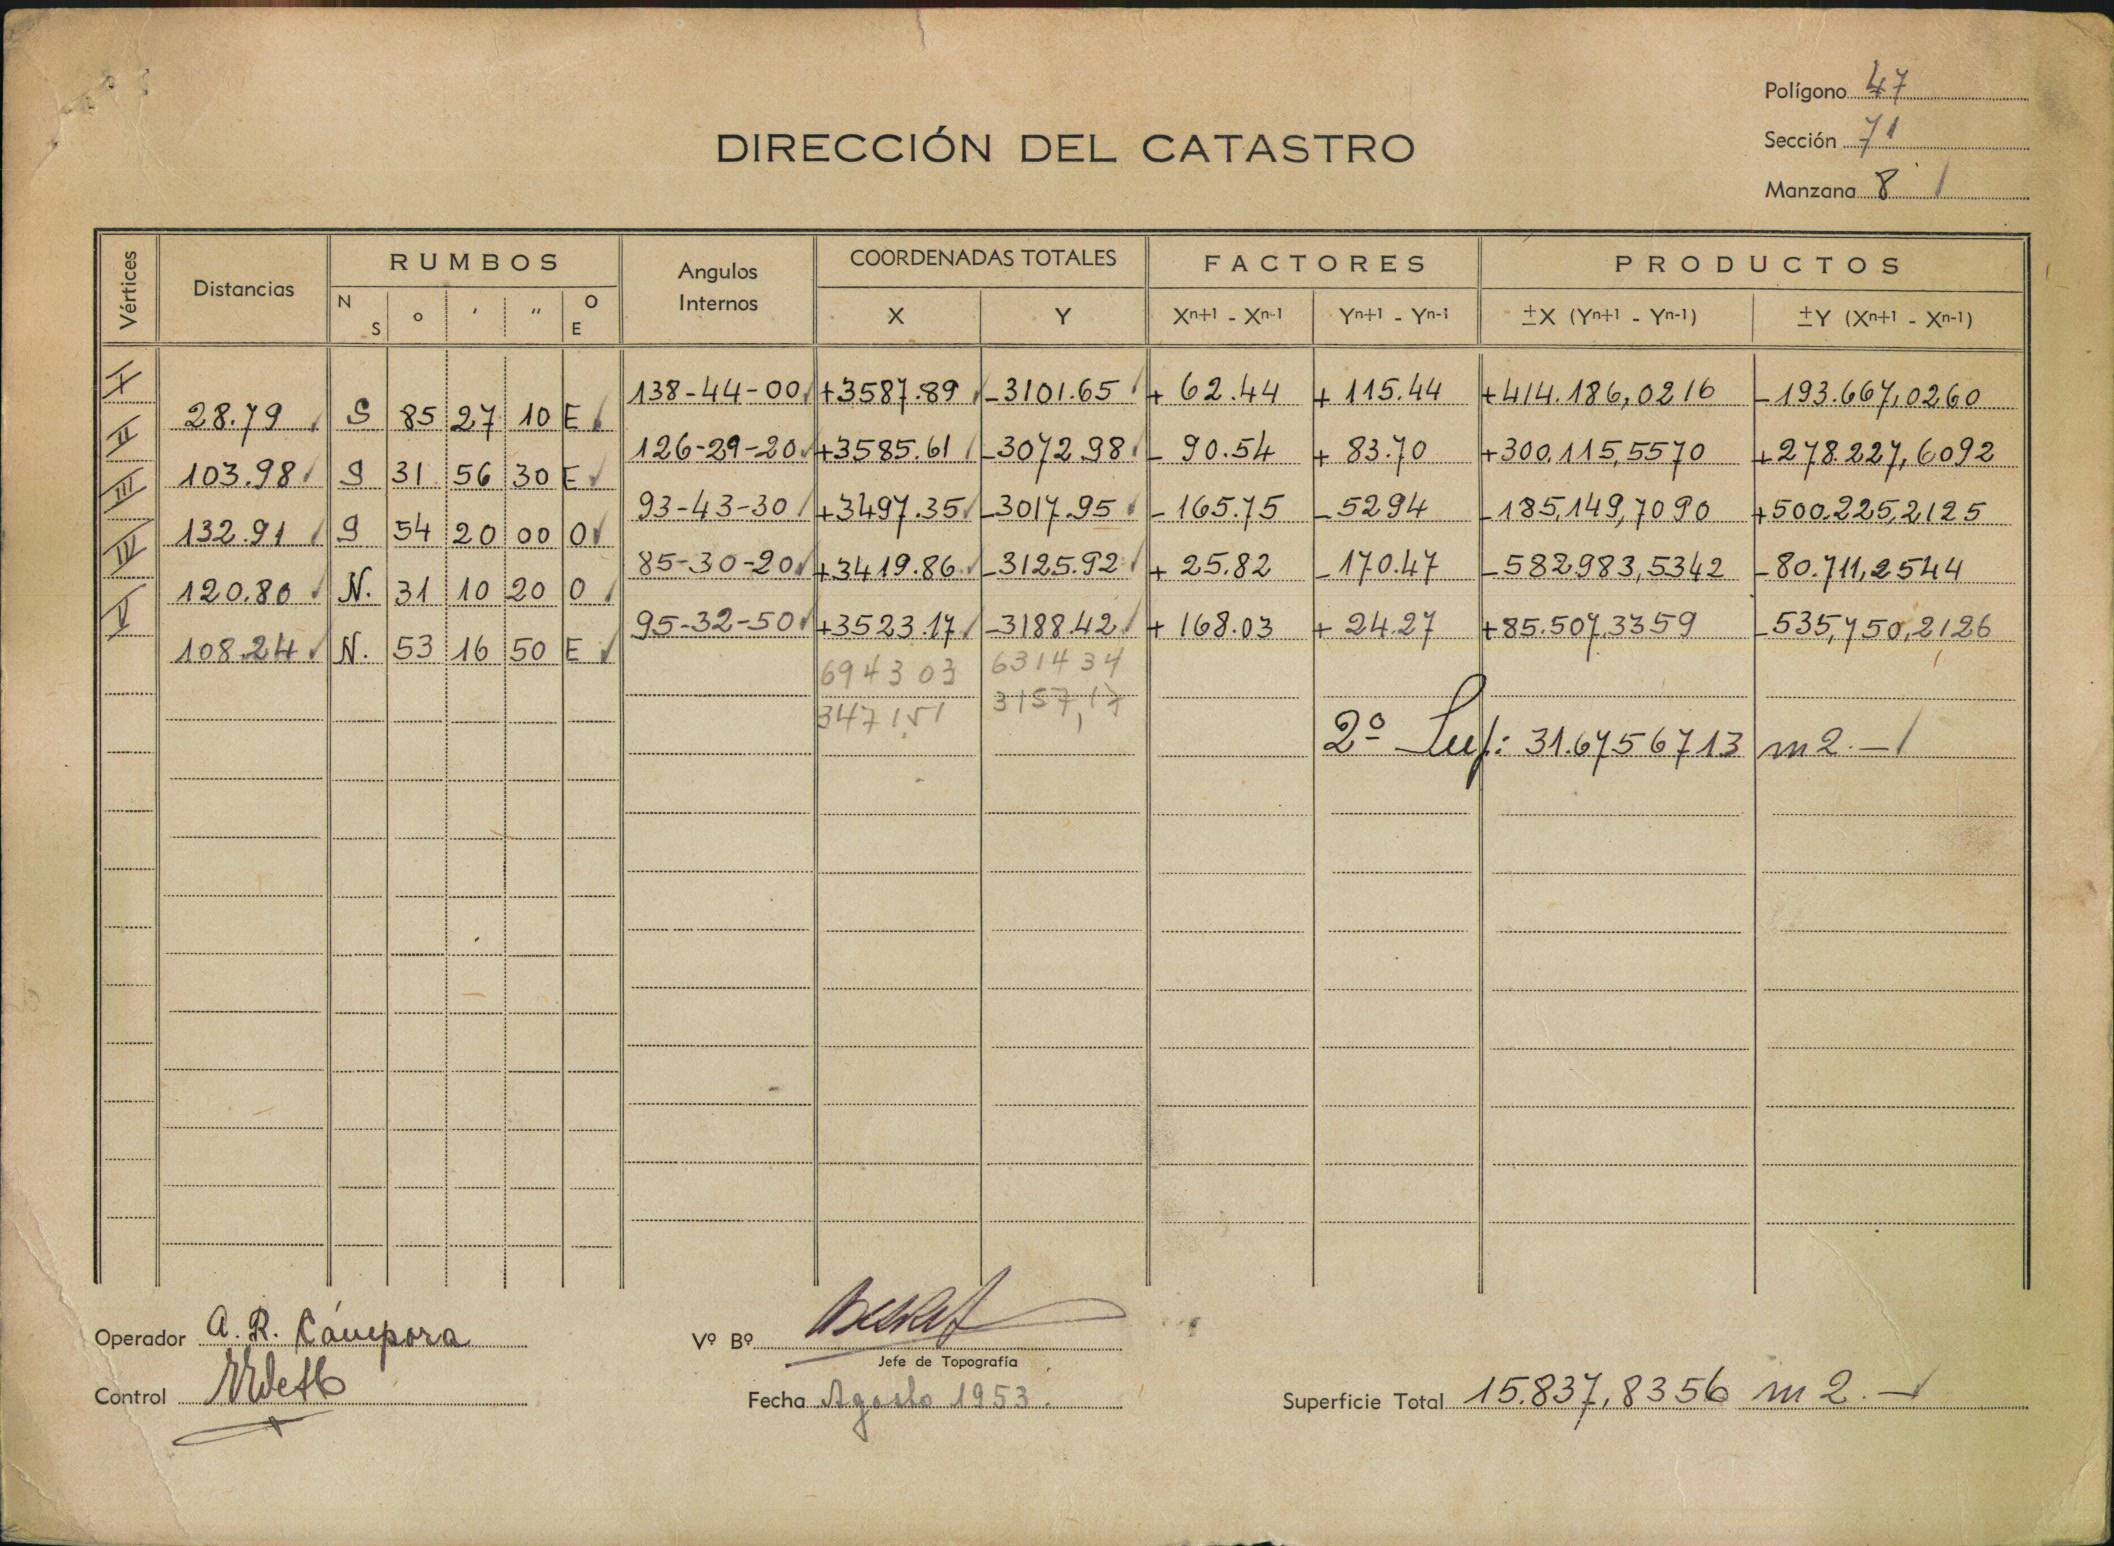 Polígono 47
DIRECCIÓN DEL CATASTRO
Sección 71
Manzana 8
Vértices Distancias RUMBOS N S ° ' " O E Angulos Internos COORDENADAS TOTALES X Y FACTORES Xn+1 - Xn-1 Yn+1 - Yn-1 PRODUCTOS ±X (Yn+1 - Yn-1) ±Y (Xn+1 - Xn-1)
I 138-44-00 +3587.89 -3101.65 + 62.44 + 115.44 +414.186,0216 -193.667,0260
28.79 S 85 27 10 E
II 126-29-20 +3585.61 -3072.98 - 90.54 + 83.70 +300.115,5570 +278.227,6092
103.98 S 31 56 30 E
III 93-43-30 +3497.35 -3017.95 - 165.75 -5294 -185,149,7090 +500.225,2125
132.91 S 54 20 00 O
IV 85-30-20 +3419.86 -3125.92 + 25.82 -170.47 -582983,5342 -80.711,2544
120.80 N. 31 10 20 O
V 95-32-50 +3523.17 -3188.42 + 168.03 + 24.27 +85.507,3359 -535,750,2126
108.24 N. 53 16 50 E
694303 631434
347151 3157,17
2º Sup: 31.6756713 m2.-
Operador A. R. Cámpora
Vº Bº
Jefe de Topografía
Control
Fecha Agosto 1953.
Superficie Total 15.837,8356 m2.-